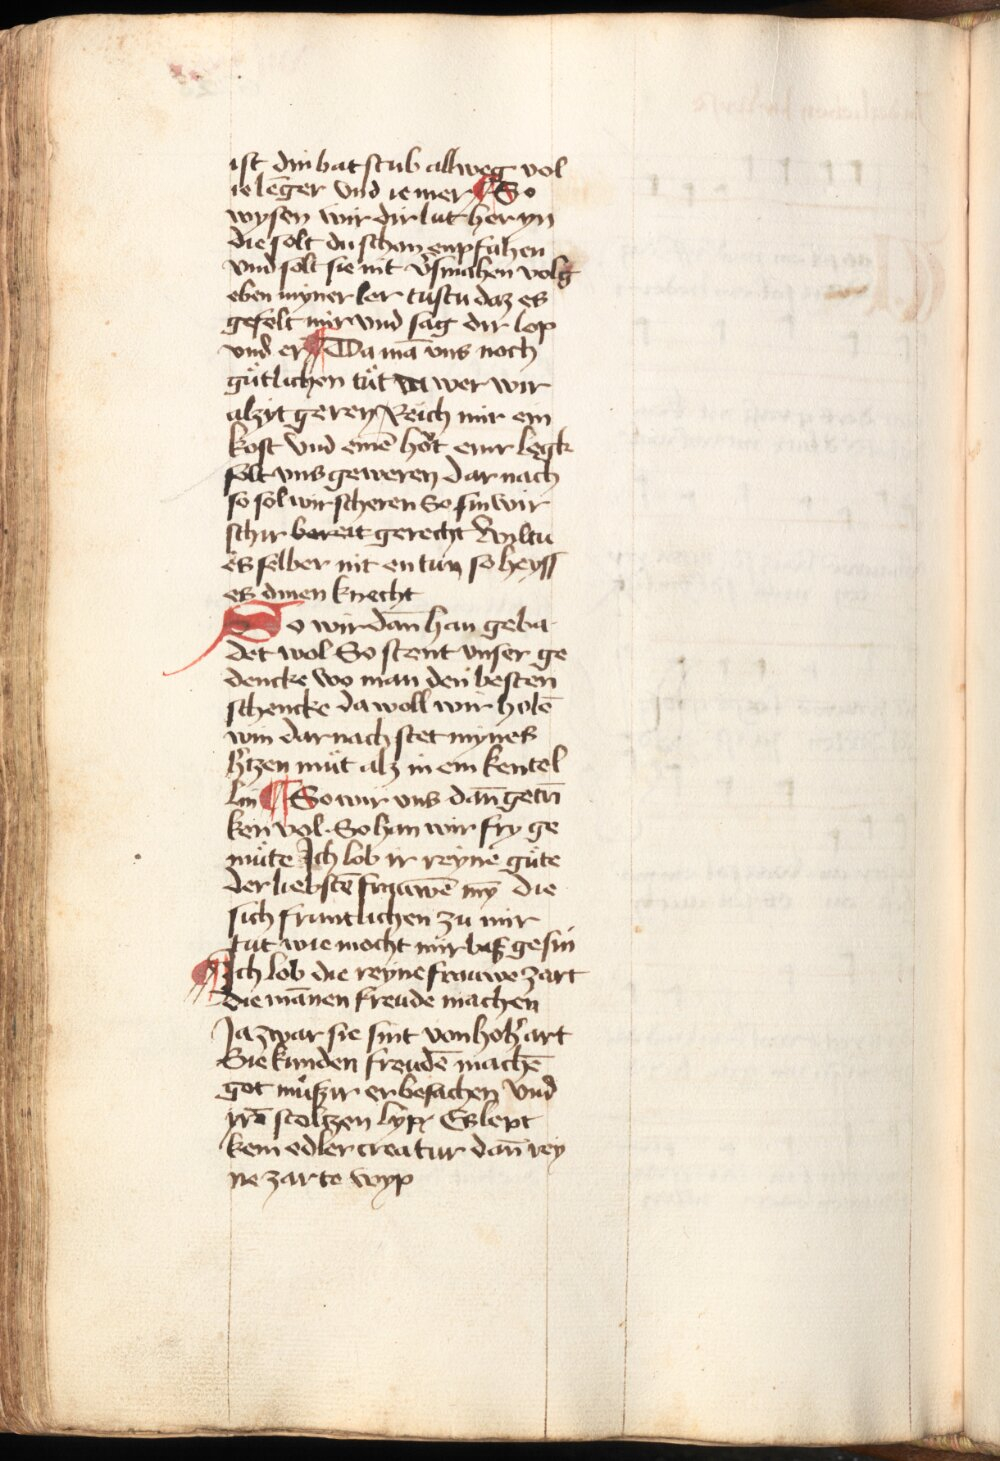 ist din bat stub allweg vol
ie lēger vnd ie mer ¶ So
wysen wir dir lut her yn
die solt du schon enpfahen
vnd solt sie nit v̉smahen volg
eben myner ler tustu daz es
gefelt mir vnd sag dir lop
vnd er ¶ Da mā vns noch
gütlichen tüt da wer wir
alzyt geren Reich mir ein
kost vnd einē hůt einr legk
solt vns geweren dar nach
so sol wir scheren So sin wir
schir bereit gerecht Wiltu
es selber nit en tun so heyss
es dinen knecht
So wir dān han geba
det wol So stent vnser ge
dencke wo man den besten
schencke da woll wir holē
win dar nach stet mynes
h̉tzen müt alz in ein kentel
lin ¶ So wir vns dān getrī
ken vol · So han wir fry ge
müte Ich lob ir reyne güte
der liebstē frauwē my̅ die
sich fruntlichen zu mir
tut wie mocht mir baß gesin
¶ Ich lob die reyne frauwe zart
die mānen freude machen
Ja zwar sie sint von hoh̉ art
Sie kunden freudē machē
got müß ir er besachen vnd
irrē stoltzen lyp Es lept
kein edler creatur dān rey
ne zarte wyp